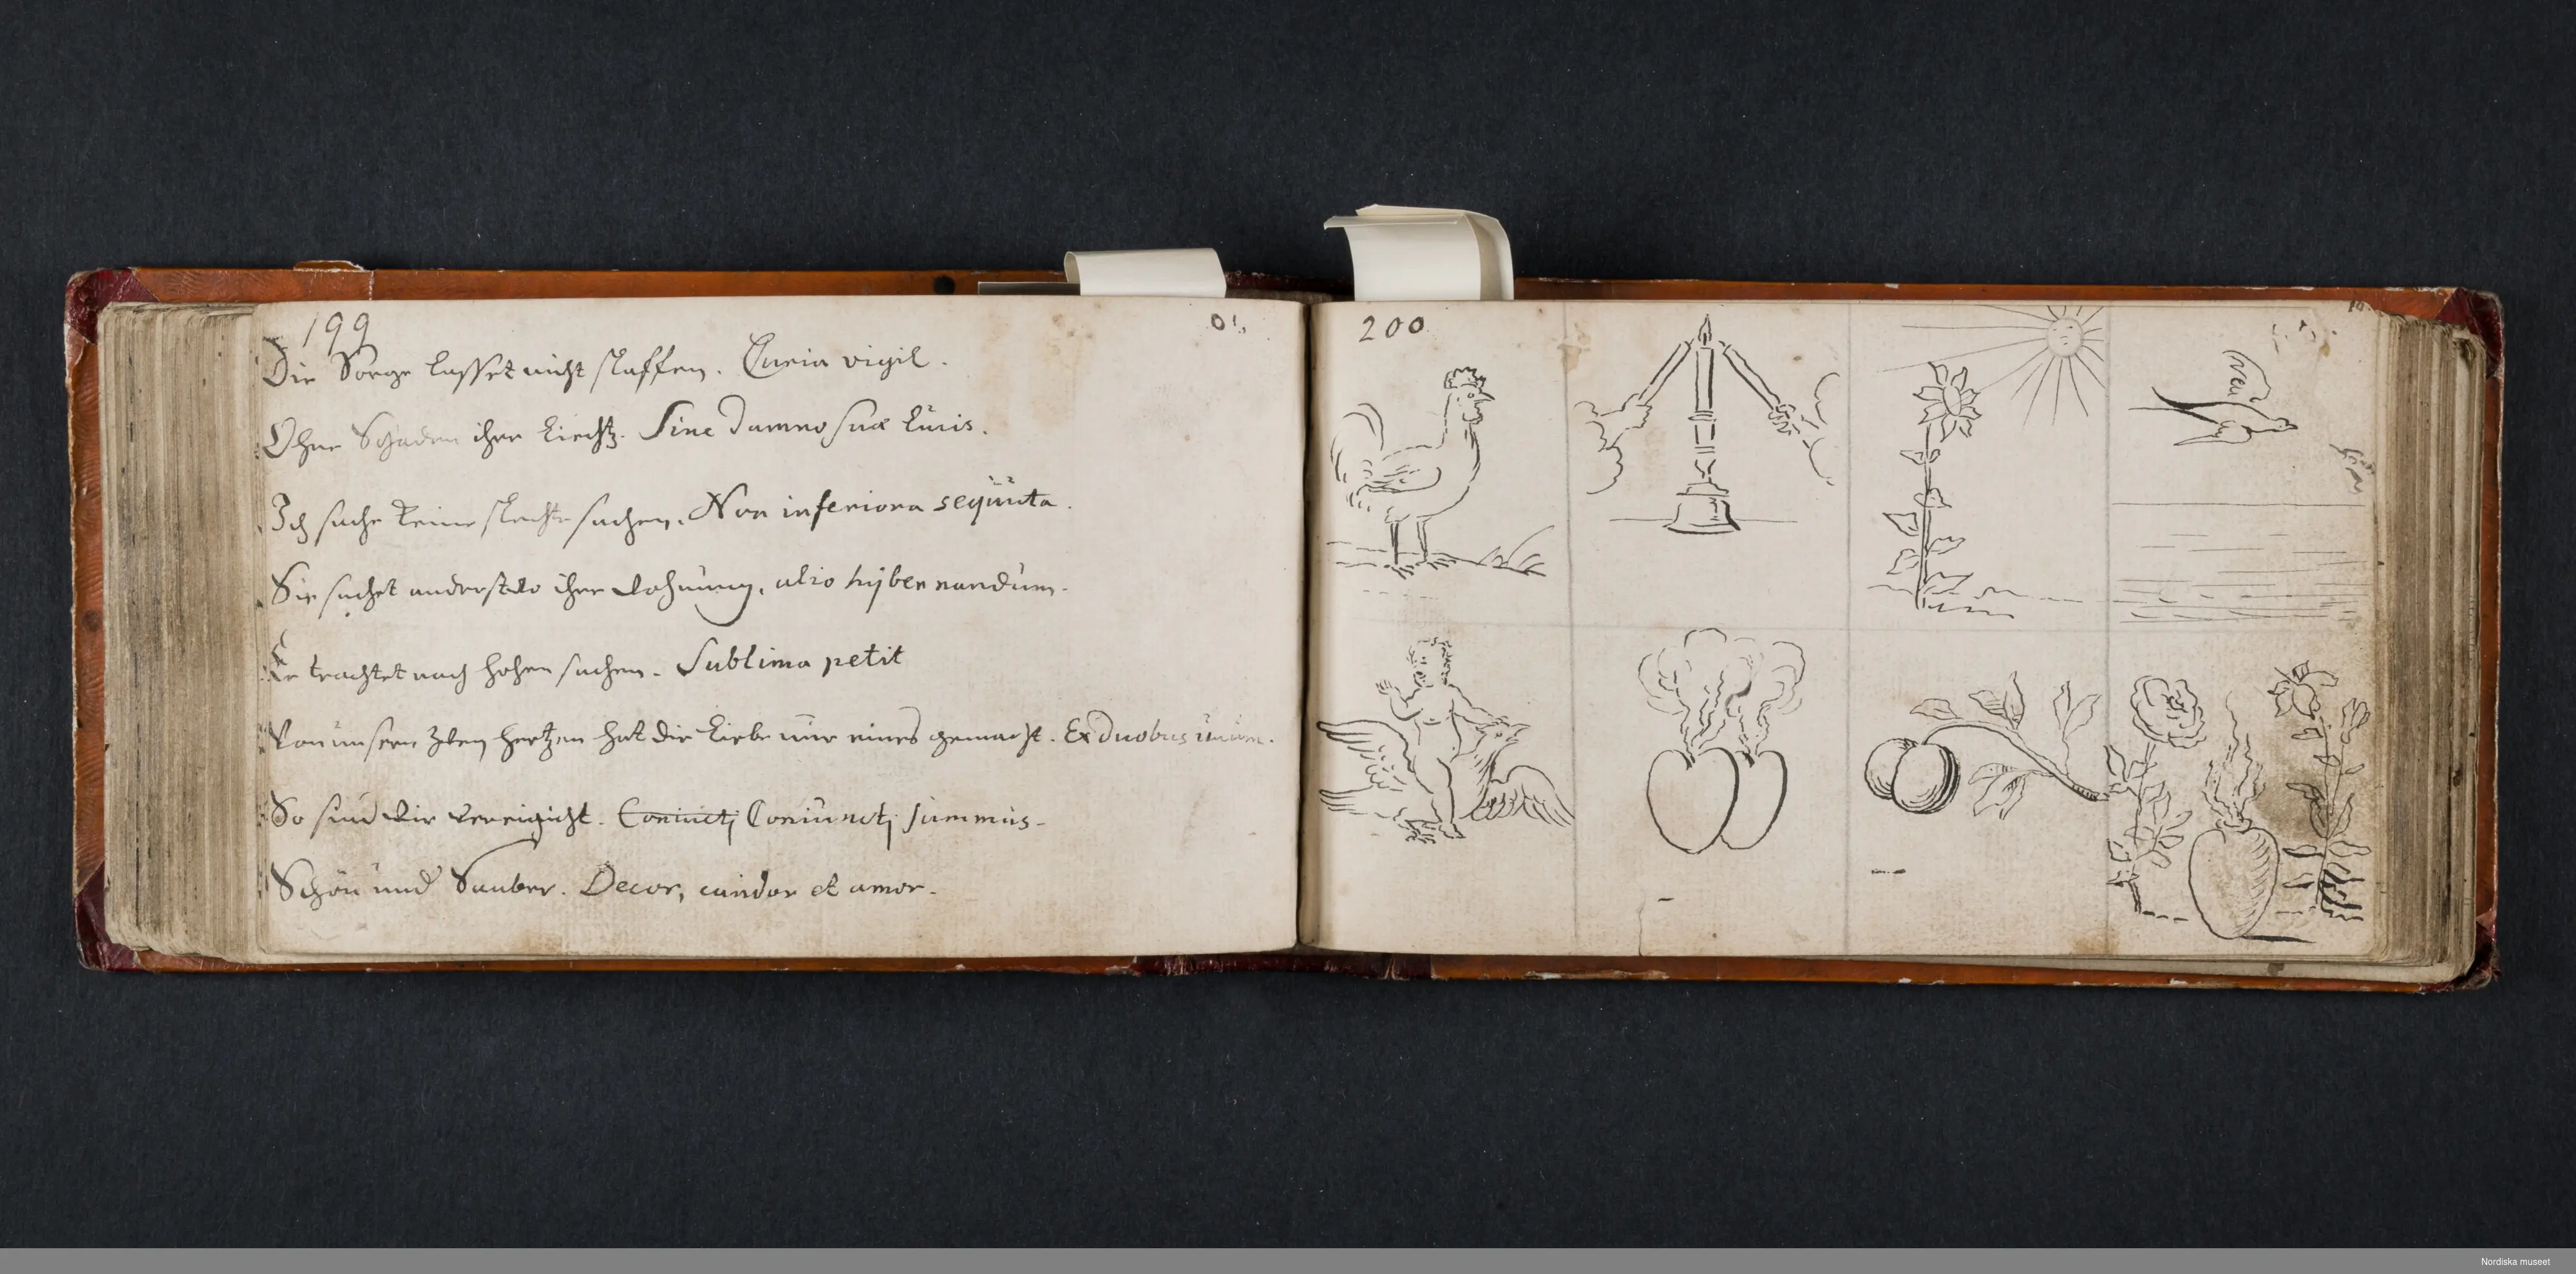 199
01.
Die Sorge lasset nicht slaffen. Curia vigil.
Ohne Schaden ihre Liecht. Sine damno suæ lucis.
Ich suche keine slechte sachen. Non inferiora sequuta.
Sie suchet anderstwo ihre wohnung. alio hijbernandum.
Er trachtet nach hohen sachen. Sublima petit
Von unsern zweij hertzen hat die Liebe nur eines gemacht. Ex duobus unum.
So sind wir vereinicht. Coniuctj Coniunctj summus.
Schön und Sauber. Decor, candor et amor.
200
10.
Nordiska museet